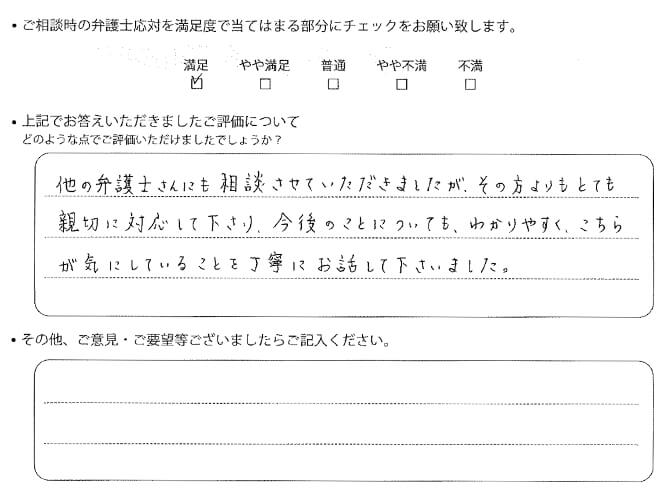 • ご相談時の弁護士応対を満足度で当てはまる部分にチェックをお願い致します。
満足 やや満足 普通 やや不満 不満
☑ □ □ □ □
• 上記でお答えいただきましたご評価について
どのような点でご評価いただけましたでしょうか？
他の弁護士さんにも相談させていただきましたが、その方よりもとても
親切に対応して下さり、今後のことについても、わかりやすく、こちら
が気にしていることを丁寧にお話して下さいました。
• その他、ご意見・ご要望等ございましたらご記入ください。